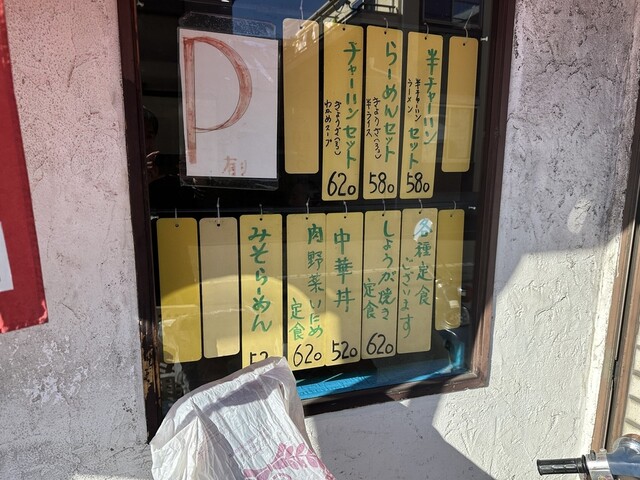 P
有り
半チャーハン
セット
半チャーハン
ラーメン
580
らーめんセット
ぎょうざ(3コ)
半ライス
580
チャーハンセット
ぎょうざ(3コ)
わかめスープ
620
各種定食
ございます
しょうが焼き
定食
620
中華丼
520
肉野菜いため
定食
620
みそらーめん